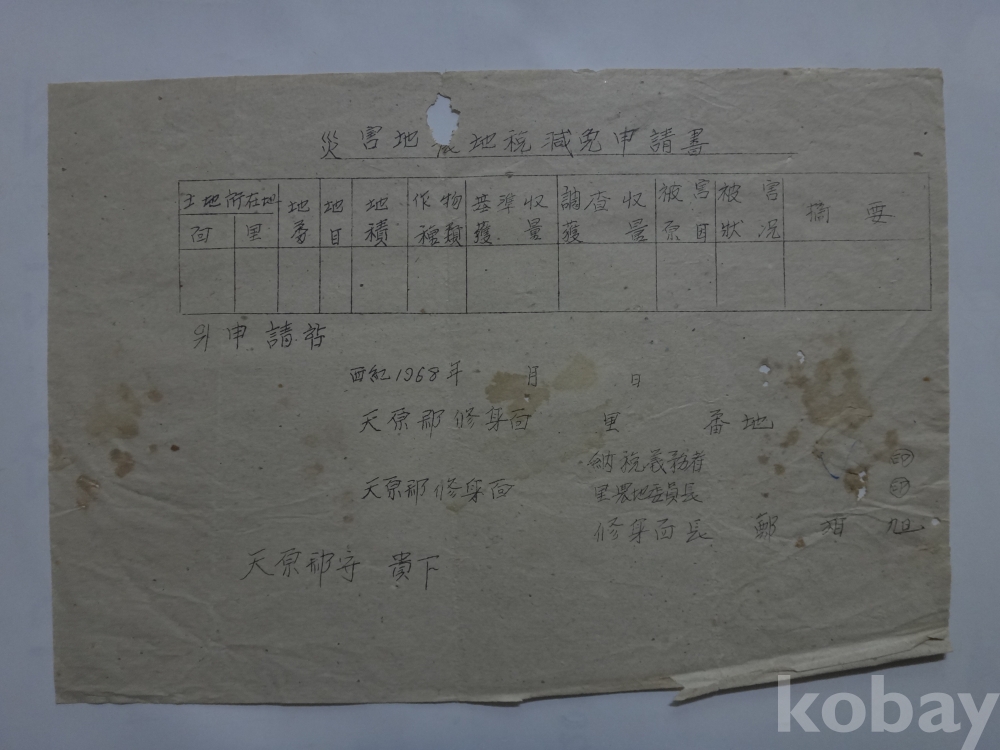 災害地 農地税減免申請書
土地所在地 地番 地目 地積 作物種類 基準收穫量 調査收穫量 被害原因 被害狀況 摘要
面 里
위 申請함
西紀1968年 月 日
天原郡修身面 里 番地
納税義務者 印
天原郡修身面 里農地委員長 印
修身面長 鄭 旭
天原郡守 貴下
kobay